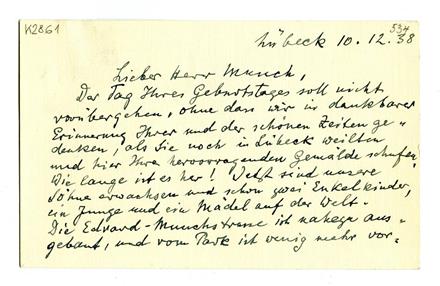 K2861
534
Lübeck 10.12.38
Lieber Herr Munch,
Der Tag Ihres Geburtstages soll nicht
vorübergehen, ohne dass wir in dankbarer
Erinnerung Ihrer und der schönen Zeiten ge-
denken, als Sie noch in Lübeck weilten
und hier Ihre hervorragenden Gemälde schufen.
Wie lange ist es her! Jetzt sind unsere
Söhne erwachsen und schon zwei Enkelkinder,
ein Junge und ein Mädel auf der Welt.
Die Edvard-Munchstrasse ist nahezu aus-
gebaut, und vom Park ist wenig mehr vor-